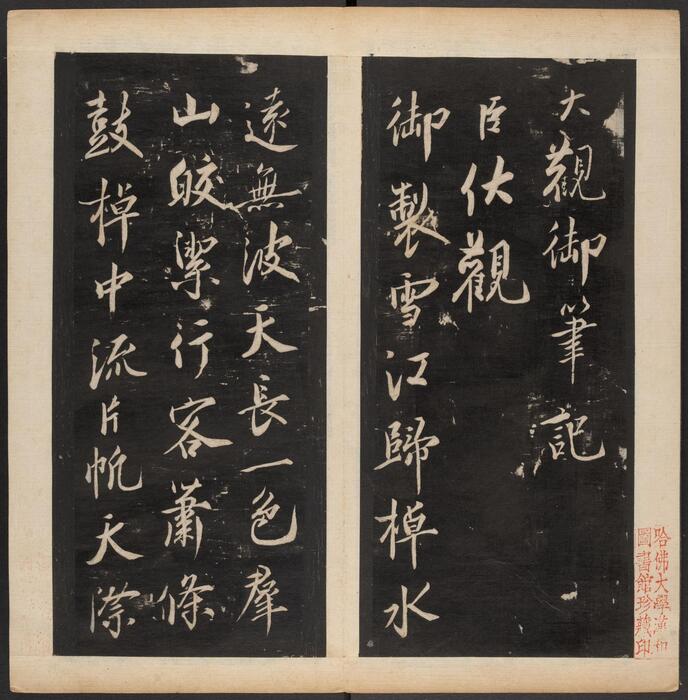 大觀御筆記
臣伏觀
御製雪江歸棹水
遠無波天長一色羣
山皎潔行客蕭條
鼓棹中流片帆天際
哈佛大學漢和
圖書館珍藏印